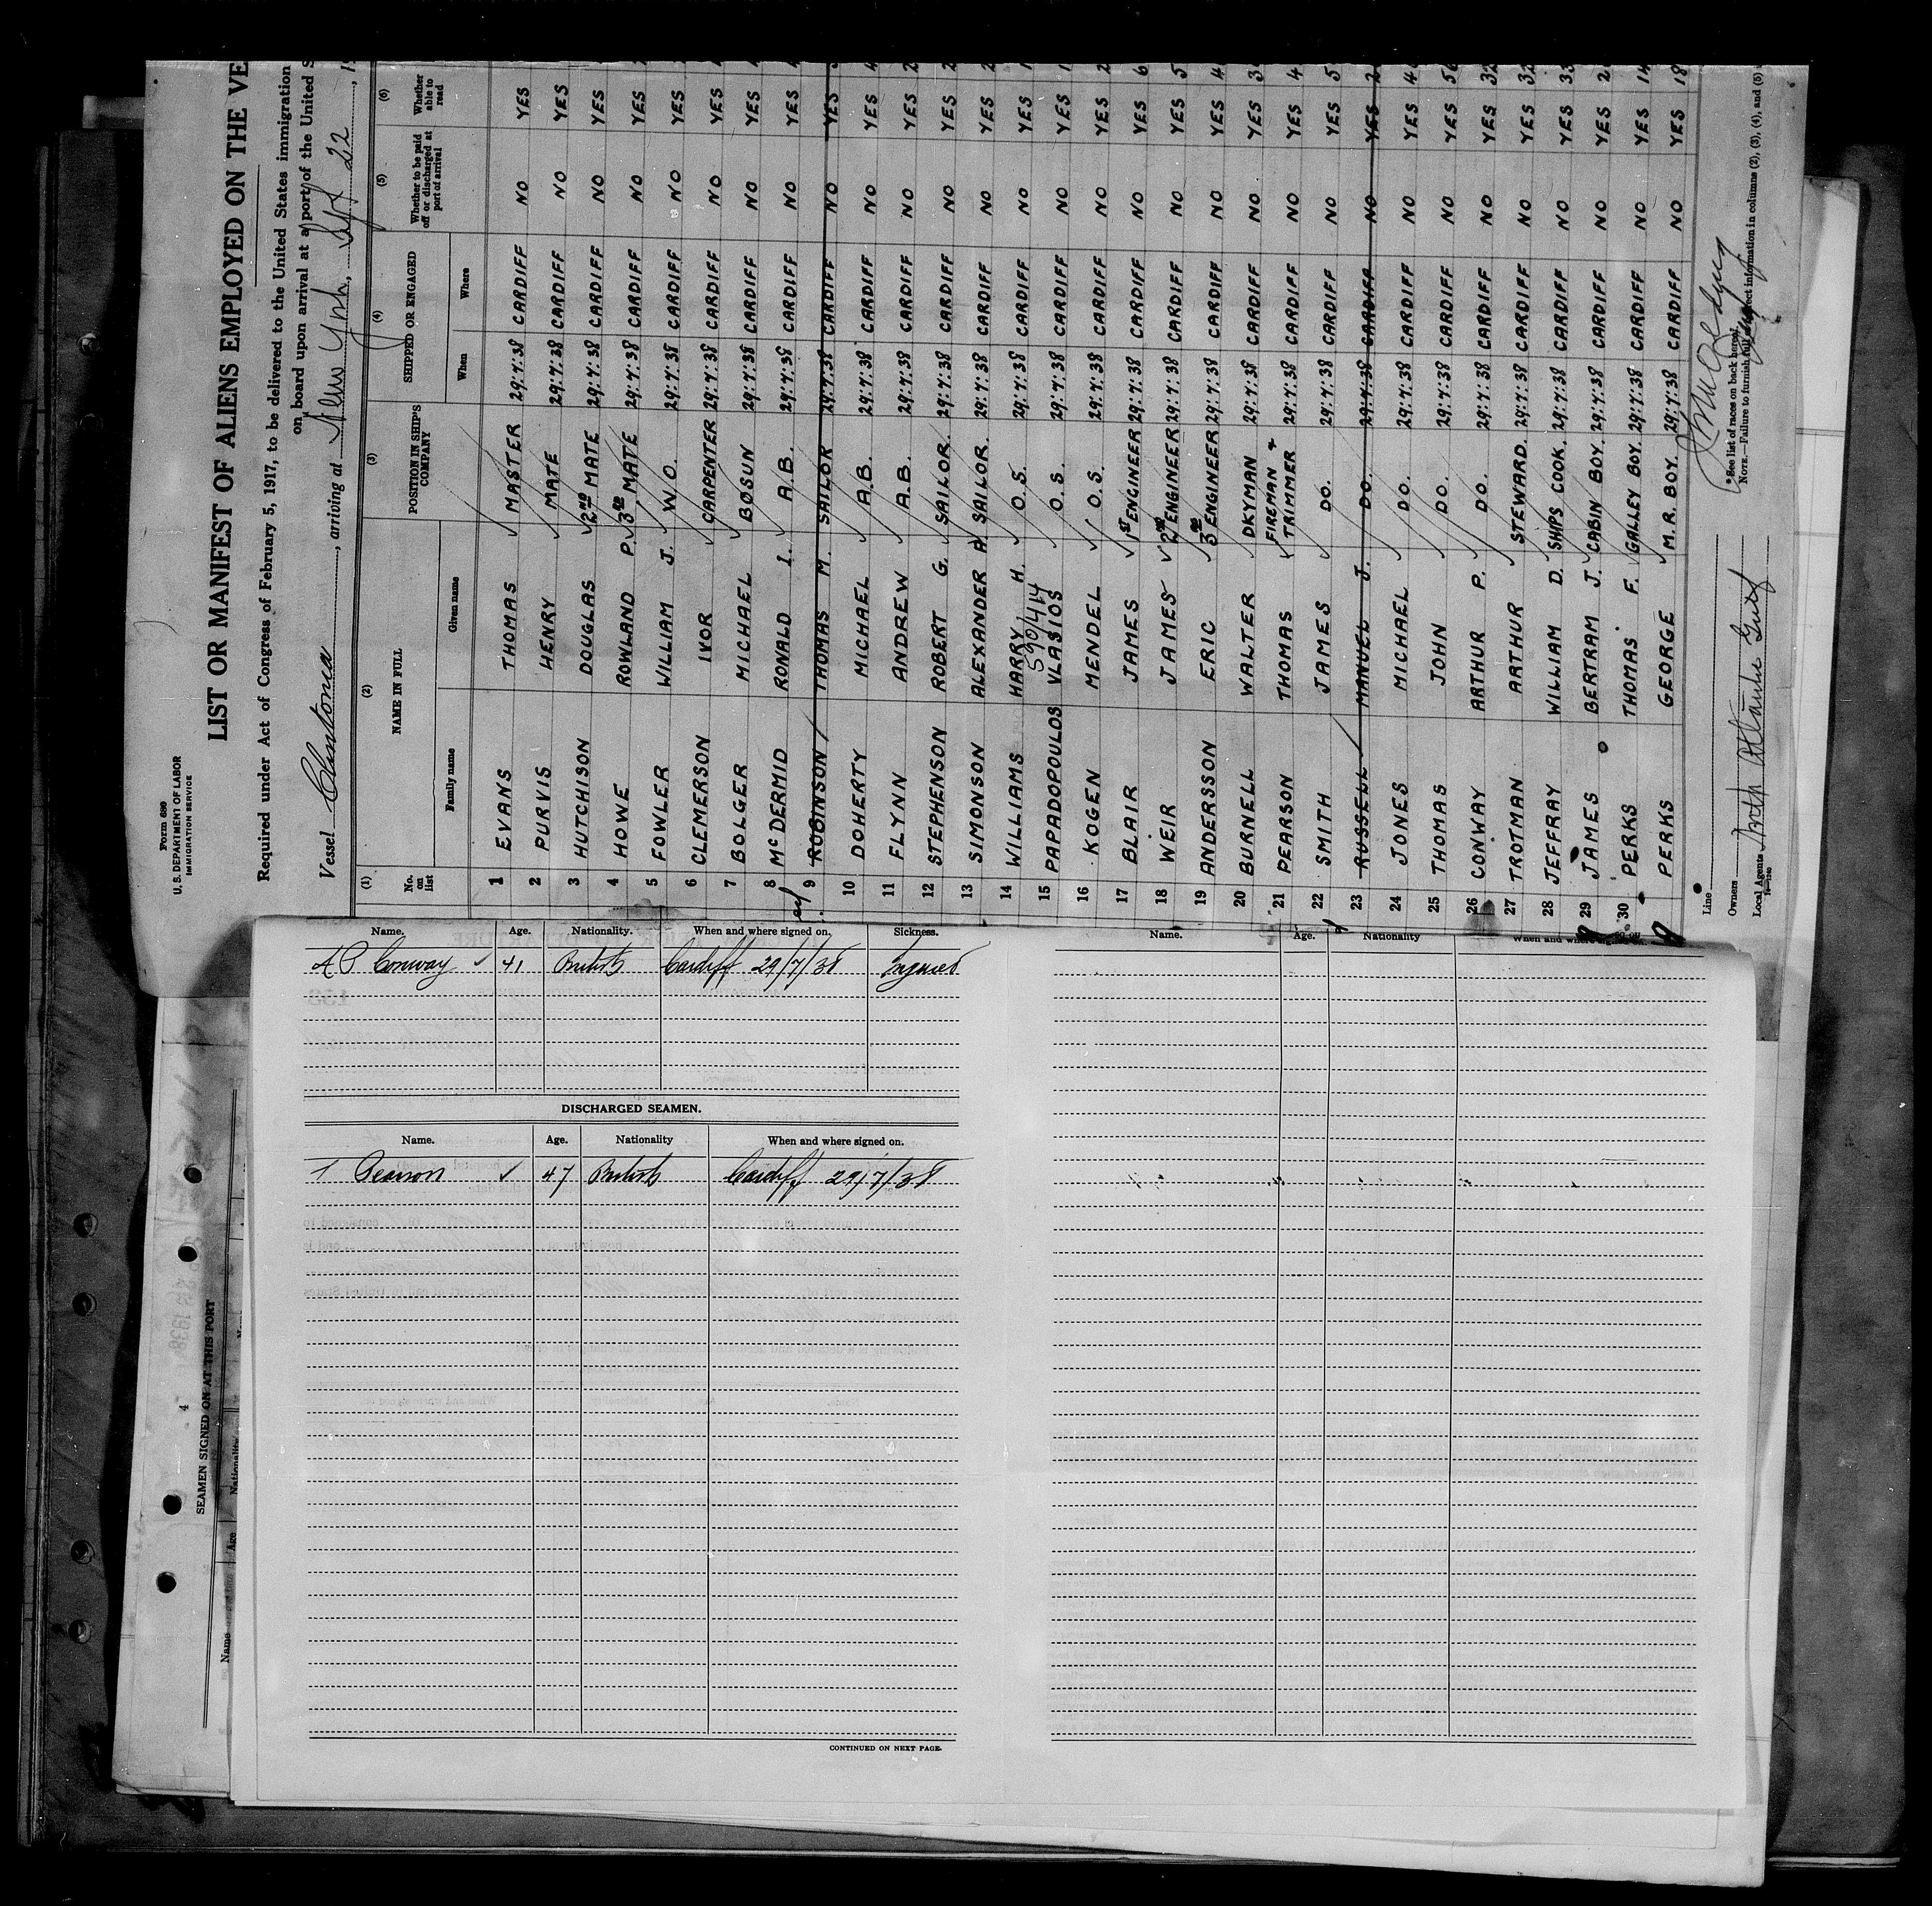 Form 680
U. S. DEPARTMENT OF LABOR
IMMIGRATION SERVICE
LIST OR MANIFEST OF ALIENS EMPLOYED ON THE VE
Required under Act of Congress of February 5, 1917, to be delivered to the United States immigration
on board upon arrival at a port of the United S
Vessel Clintonia, arriving at New York, Sept 22, 1
(1) (2) (3) (4) (5) (6)
No. on list NAME IN FULL POSITION IN SHIP'S COMPANY SHIPPED OR ENGAGED Whether to be paid off or discharged at port of arrival Whether able to read
Family name Given name When Where
1 EVANS THOMAS MASTER 29.7.38 CARDIFF NO YES
2 PURVIS HENRY MATE 29.7.38 CARDIFF NO YES
3 HUTCHISON DOUGLAS 2ND MATE 29.7.38 CARDIFF NO YES
4 HOWE ROWLAND P. 3RD MATE 29.7.38 CARDIFF NO YES
5 FOWLER WILLIAM J. W.O. 29.7.38 CARDIFF NO YES
6 CLEMERSON IVOR CARPENTER 29.7.38 CARDIFF NO YES
7 BOLGER MICHAEL BOSUN 29.7.38 CARDIFF NO YES
8 McDERMID RONALD I. A.B. 29.7.38 CARDIFF NO YES
9 ROBINSON THOMAS M. SAILOR 29.7.38 CARDIFF NO YES
10 DOHERTY MICHAEL A.B. 29.7.38 CARDIFF NO YES 4
11 FLYNN ANDREW A.B. 29.7.38 CARDIFF NO YES 2
12 STEPHENSON ROBERT G. SAILOR. 29.7.38 CARDIFF NO YES 2
13 SIMONSON ALEXANDER A. SAILOR. 29.7.38 CARDIFF NO YES 2
14 WILLIAMS HARRY H. O.S. 29.7.38 CARDIFF NO YES 1
590/414
15 PAPADOPOULOS VLASIOS O.S. 29.7.38 CARDIFF NO YES 1
16 KOGEN MENDEL O.S. 29.7.38 CARDIFF NO YES 2
17 BLAIR JAMES 1ST ENGINEER 29.7.38 CARDIFF NO YES 6
18 WEIR JAMES 2ND ENGINEER 29.7.38 CARDIFF NO YES 5
19 ANDERSSON ERIC 3RD ENGINEER 29.7.38 CARDIFF NO YES 4
20 BURNELL WALTER DKYMAN 29.7.38 CARDIFF NO YES 3
21 PEARSON THOMAS FIREMAN & TRIMMER 29.7.38 CARDIFF NO YES 4
22 SMITH JAMES DO. 29.7.38 CARDIFF NO YES 5
23 RUSSELL MANUEL J. DO. 29.7.38 CARDIFF NO YES 2
24 JONES MICHAEL DO. 29.7.38 CARDIFF NO YES 4
25 THOMAS JOHN DO. 29.7.38 CARDIFF NO YES 56
26 CONWAY ARTHUR P. DO. 29.7.38 CARDIFF NO YES 32
27 TROTMAN ARTHUR STEWARD. 29.7.38 CARDIFF NO YES 32
28 JEFFRAY WILLIAM D. SHIPS COOK. 29.7.38 CARDIFF NO YES 33
29 JAMES BERTRAM J. CABIN BOY. 29.7.38 CARDIFF NO YES 2
30 PERKS THOMAS F. GALLEY BOY. 29.7.38 CARDIFF NO YES 14
PERKS GEORGE M.R. BOY. 29.7.38 CARDIFF NO YES 18
Line
Owners
Local Agents North Atlantic Gulf
*See list of races on back hereof.
NOTE.—Failure to furnish full information in columns (2), (3), (4), and (5)
Name. Age. Nationality. When and where signed on. Sickness.
A P Conway 41 British Cardiff 29/7/38 Injured
DISCHARGED SEAMEN.
Name. Age. Nationality When and where signed on.
T Pearson 47 British Cardiff 29/7/38
CONTINUED ON NEXT PAGE.
Name. Age. Nationality When and where
4
SEAMEN SIGNED ON AT THIS PORT
Name Age Nationality